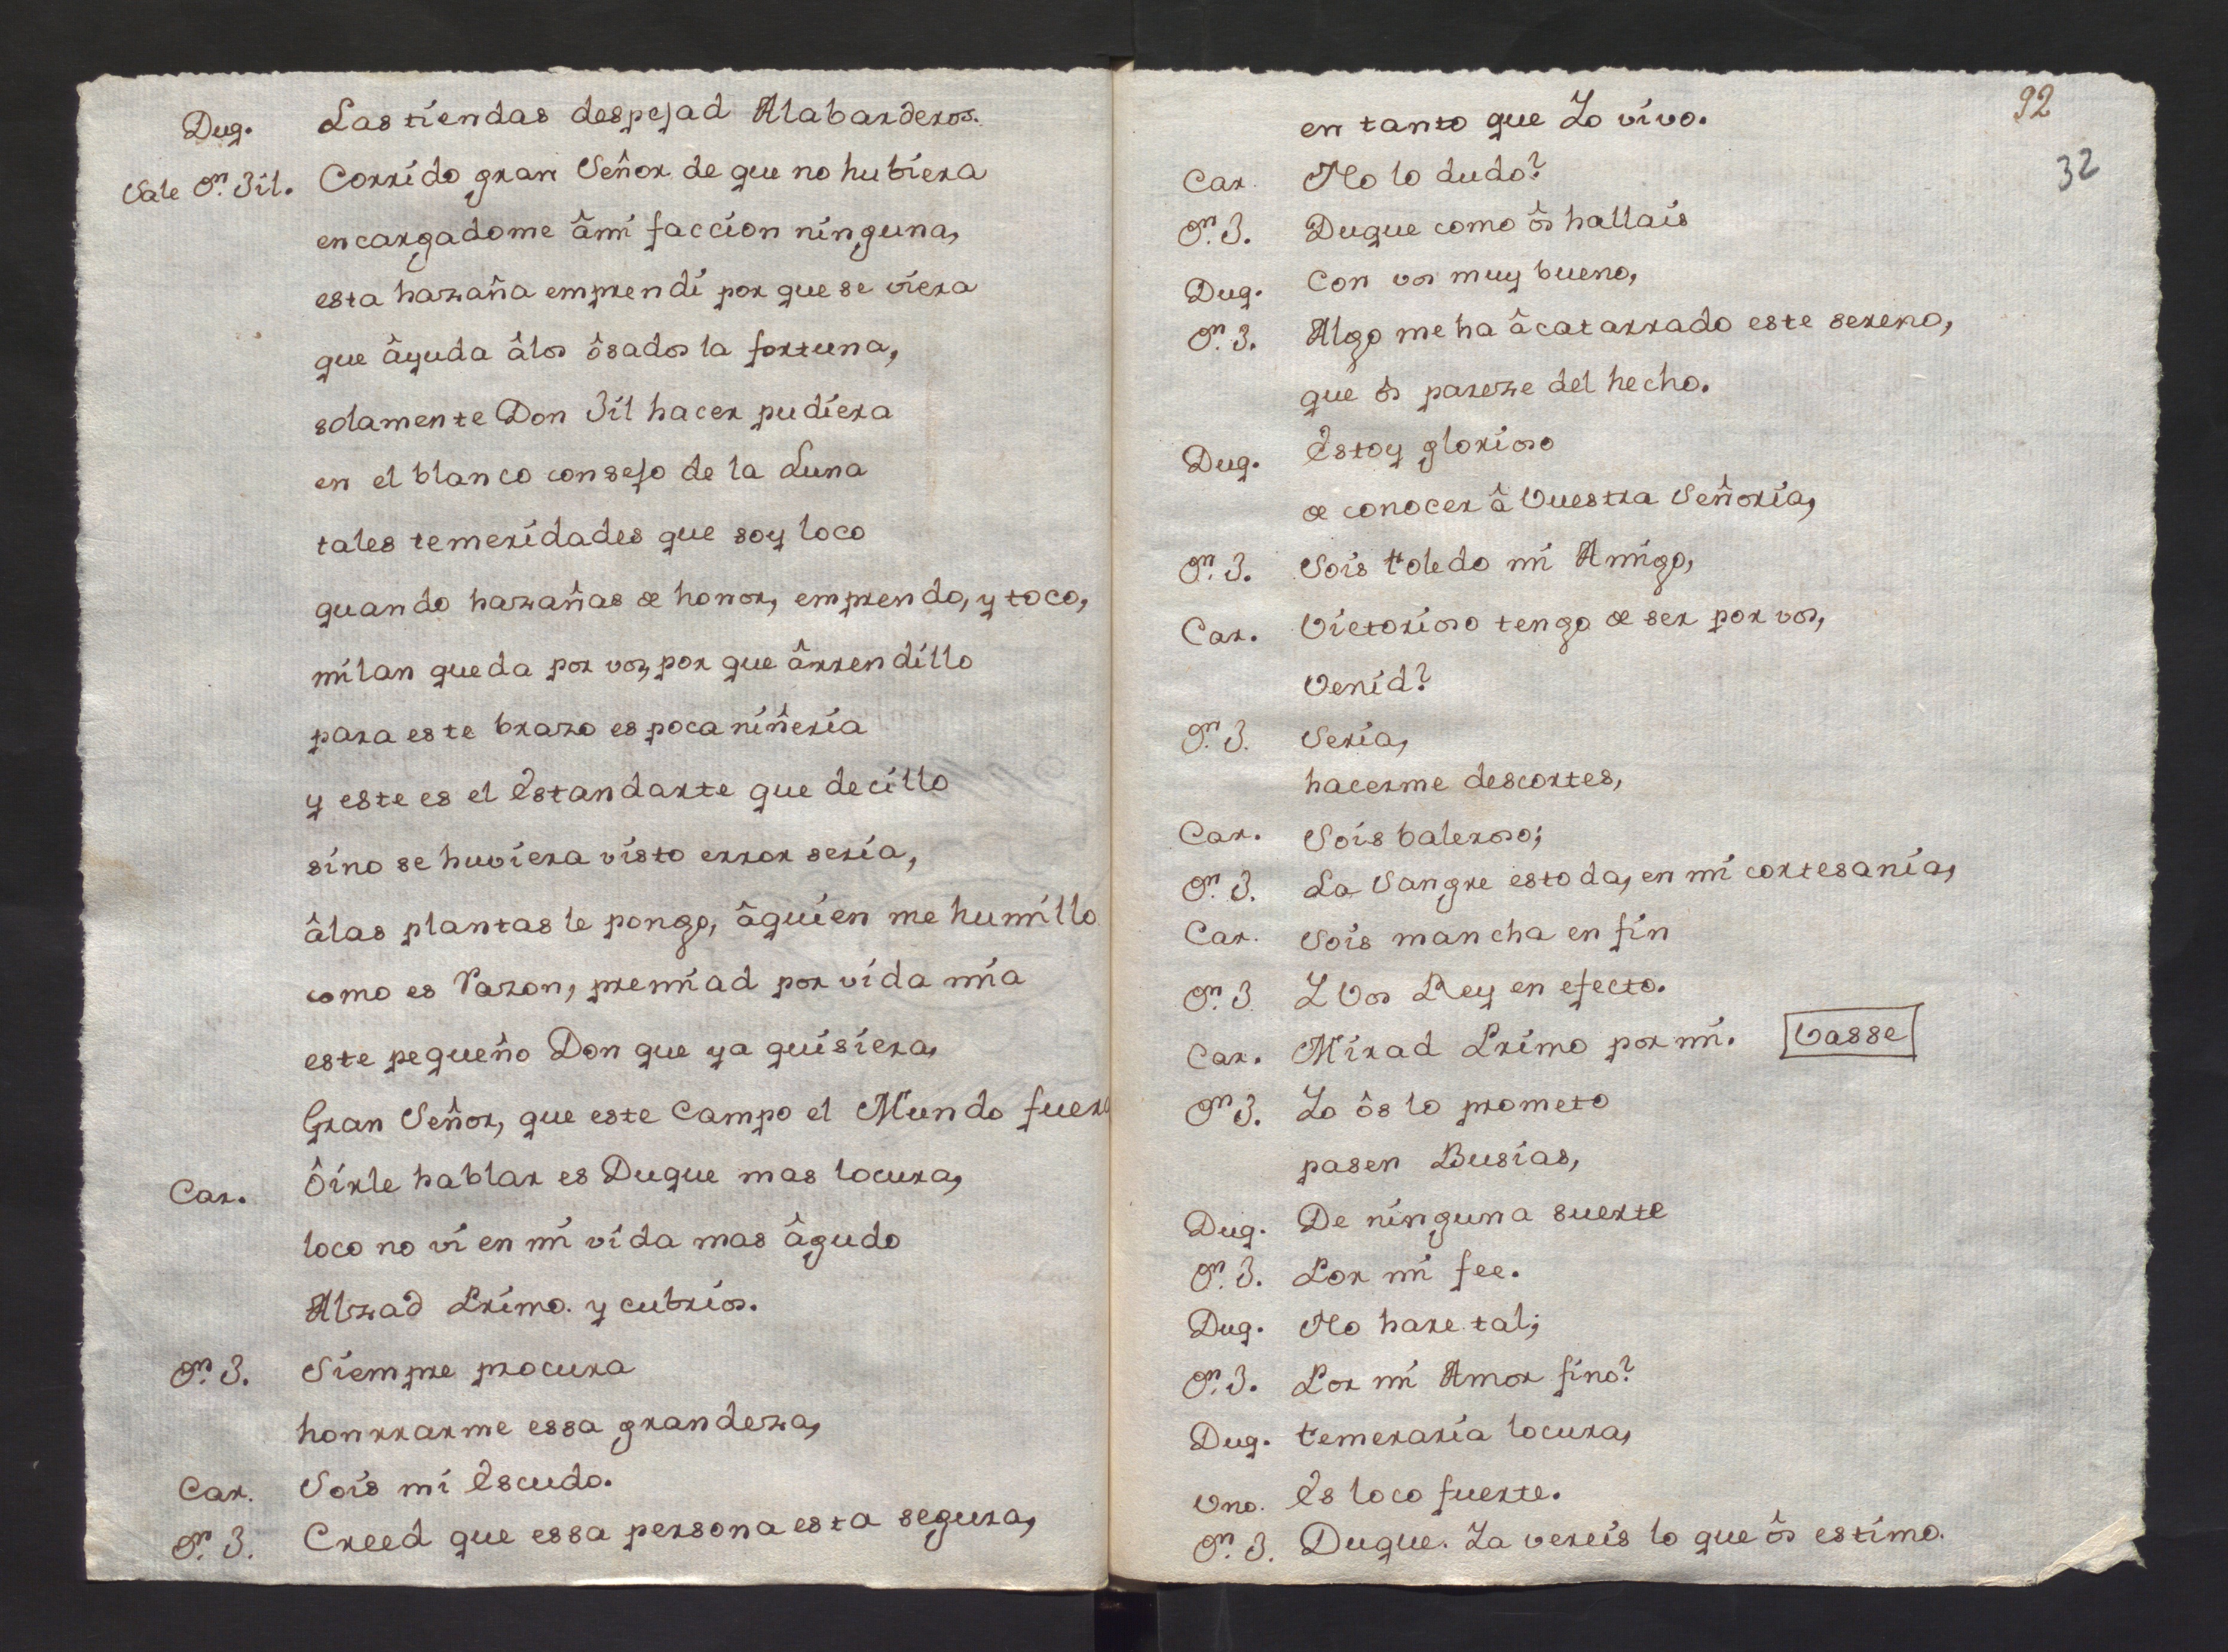 Duq. Las tiendas despejad Alabarderos.
Sale Dn. Jil. Corrido gran Señor de que no hubiera
encargadome âmi faccion ninguna,
esta hazaña emprendi por que se viera
que âyuda âlos ôsados la fortuna,
solamente Don Jil hacer pudiera
en el blanco consejo de la Luna
tales temeridades que soy loco
quando hazañas de honor, emprendo, y toco,
milan queda por vos, por que ârrendillo
para este brazo es poca niñeria
y este es el êstandarte que decillo
sino se huviera visto error seria,
âlas plantas le pongo, âquien me humillo
como es Razon, premiad por vida mia
este pequeño Don que ya quisiera,
Gran Señor, que este Campo el Mundo fuera
Car. ôirle hablar es Duque mas locura,
loco no vi en mi vida mas âgudo
Alzad Primo. y cubrios.
Dn. J. Siempre procura
honrrarme essa grandeza,
Car. Sois mi êscudo.
Dn. J. Creed que essa persona esta segura,
92
32
en tanto que Yo vivo.
Car. No lo dudo?
Dn. J. Duque como ôs hallais
Duq. Con vos muy bueno,
Dn. J. Algo me ha âcatarrado este sereno,
que ôs pareze del hecho.
Duq. êstoy glorioso
de conocer â Vuestra Señoria,
Dn. J. Sois toledo mi Amigo,
Car. Victorioso tengo de ser por vos,
Venid?
Dn. J. Seria,
hacerme descortes,
Car. Sois baleroso;
Dn. J. La Sangre estoda, en mi cortesania,
Car. Sois mancha en fin
Dn. J. Y Vos Rey en efecto.
Car. Mirad Primo por mi. Vasse
Dn. J. Yo ôs lo prometo
pasen Busias,
Duq. De ninguna suerte
Dn. J. Por mi fee.
Duq. No hare tal;
Dn. J. Por mi Amor fino?
Duq. temeraria locura,
Uno. ês loco fuerte.
Dn. J. Duque. Ya vereis lo que ôs estimo.